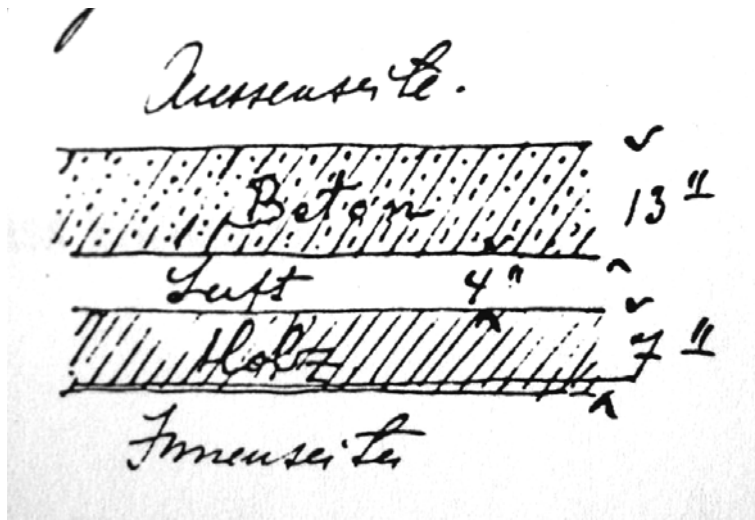 Aussenseite.
Beton
13"
Luft
4"
Holz
7"
Innenseite